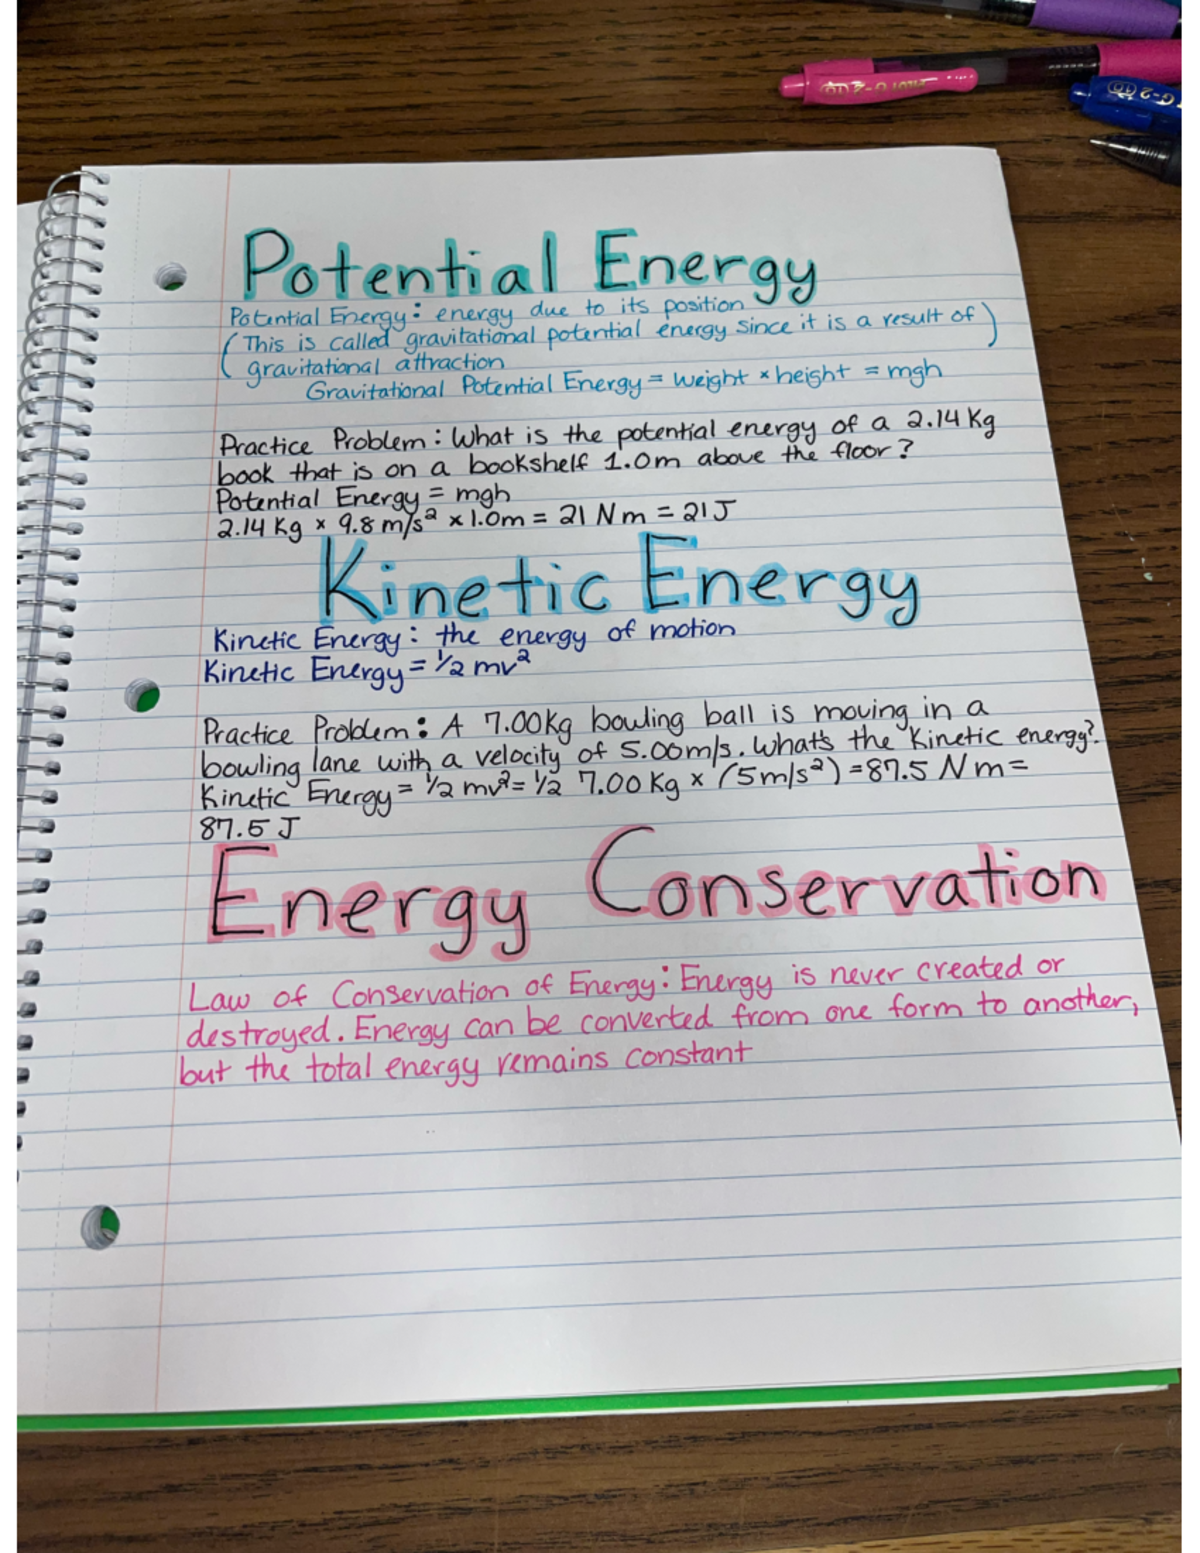 PILOT G-2 10
G-2 10
Potential Energy
Potential Energy: energy due to its position
(This is called gravitational potential energy since it is a result of
gravitational attraction)
Gravitational Potential Energy = weight × height = mgh
Practice Problem: What is the potential energy of a 2.14 Kg
book that is on a bookshelf 1.0m above the floor?
Potential Energy = mgh
2.14 Kg × 9.8 m/s² × 1.0m = 21 Nm = 21 J
Kinetic Energy
Kinetic Energy: the energy of motion
Kinetic Energy = ½ mv²
Practice Problem: A 7.00Kg bowling ball is moving in a
bowling lane with a velocity of 5.00m/s. What's the kinetic energy?
Kinetic Energy = ½ mv² = ½ 7.00 Kg × (5m/s²) = 87.5 Nm =
87.5 J
Energy Conservation
Law of Conservation of Energy: Energy is never created or
destroyed. Energy can be converted from one form to another,
but the total energy remains constant